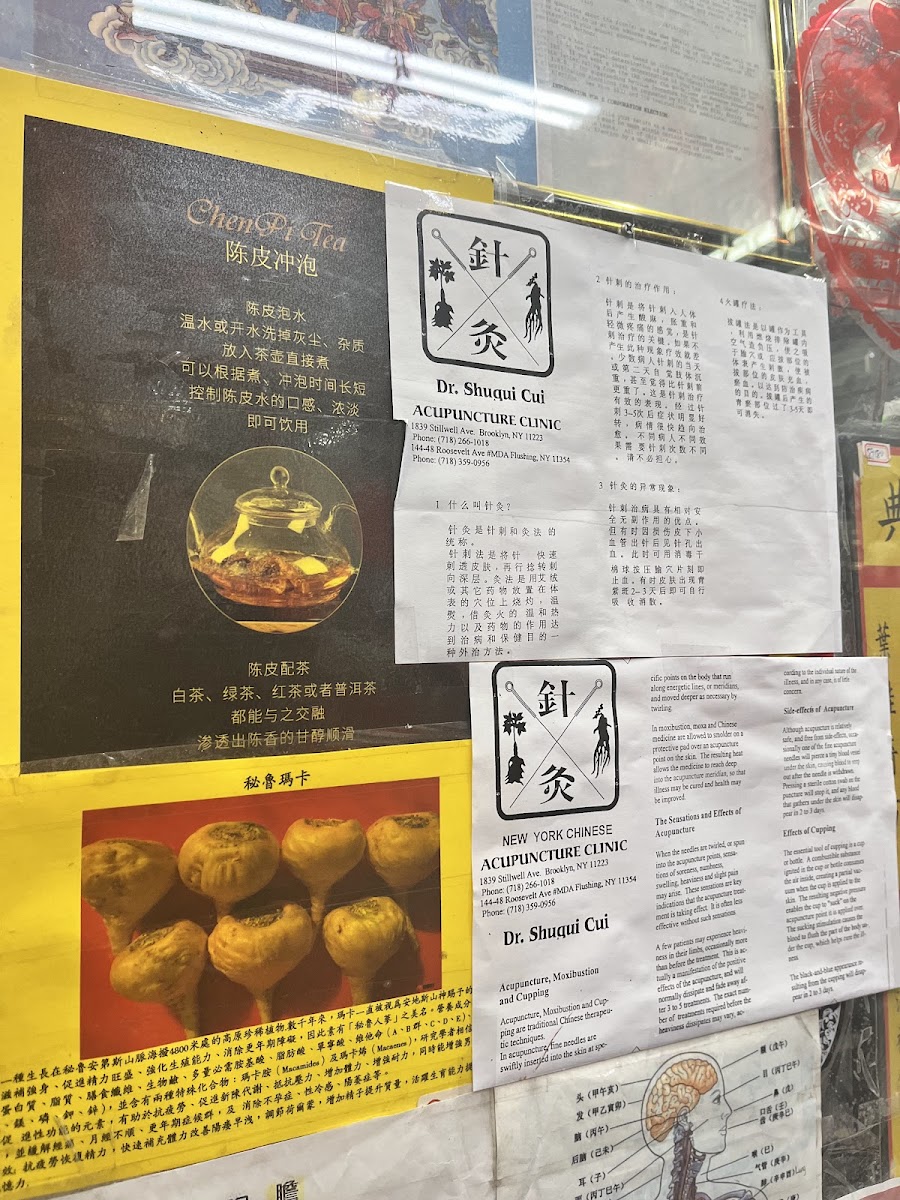 INFORMATION ON S CORPORATION ELECTION:
ChenPi Tea
陈皮冲泡
陈皮泡水
温水或开水洗掉灰尘、杂质
放入茶壶直接煮
可以根据煮、冲泡时间长短
控制陈皮水的口感、浓淡
即可饮用
陈皮配茶
白茶、绿茶、红茶或者普洱茶
都能与之交融
渗透出陈香的甘醇顺滑
秘魯瑪卡
一種生長在秘魯安第斯山脈海撥4300米處的高原珍稀植物,數千年來,瑪卡一直被視爲安地斯山神賜予的
滋補強身、促進精力旺盛、強化生殖能力、消除更年期障礙,因此素有「秘魯人蔘」之美名,營養成分
蛋白質、脂質、膳食纖維、生物鹼、多量必需胺基酸、脂肪酸、單寧酸、維他命(A、B群、C、D、E)、
、鎂、磷、鉀、鋅),並含有兩種特殊化合物:瑪卡胺(Macamides)及瑪卡烯(Macaenes),研究學者相信
促進性功能的元素,有助於抗疲勞、促進新陳代謝、抵抗壓力、增加體力、增強耐力,同時能增強男
,並緩解經絡、月經不順、更年期症候群,及消除不孕症、性冷感、陽萎症等。
效:抗疲勞恢復精力,快速補充體力改善陽痿早洩,調節荷爾蒙,增加精子提升質量,活躍生育能力提
憶力.
針
灸
Dr. Shuqui Cui
ACUPUNCTURE CLINIC
1839 Stillwell Ave. Brooklyn, NY 11223
Phone: (718) 266-1018
144-48 Roosevelt Ave #MDA Flushing, NY 11354
Phone: (718) 359-0956
1 什么叫针灸?
针灸是针刺和灸法的
统称。
针刺法是将针 快速
刺透皮肤,再行捻转刺
向深层。灸法是用艾绒
或其它药物放置在体
表的穴位上烧灼,温
熨,借灸火的 温和热
力以及药物的作用达
到治病和保健目的一
种外治方法。
2 针刺的治疗作用:
针刺是将针刺入人体
后产生酸麻,胀重和
轻微疼痛的感觉,是针
刺治疗的关键,如果不
产生此种现象疗效就差
,少数病人针刺的当天
或第二天自觉肢体沉
重,甚至觉得比针刺前
更重了。这是针刺治疗
有效的表现。经过针
刺3-5次后症状明显好
转,病情很快趋向治
愈。不同病人不同效
果需要针刺次数不同
。请不必担心。
3 针灸的异常现象:
针刺治病具有相对安
全无副作用的优点。
但有时因损伤皮下小
血管出针后见针孔出
血。此时可用消毒干
棉球按压腧穴片刻即
止血。有时皮肤出现青
紫斑2-3天后即可自行
吸收消散。
4火罐疗法:
拔罐法是以罐作为工具
,利用燃烧排除罐内
空气造负压,使之吸
于腧穴或应拔部位的
体表产生刺激,使被
拔部位的皮肤充血,
瘀血。以达到防治疾病
的目的。拔罐后产生的
青瘀部位过了3-5天即
可消失。
針
灸
NEW YORK CHINESE
ACUPUNCTURE CLINIC
1839 Stillwell Ave. Brooklyn, NY 11223
Phone: (718) 266-1018
144-48 Roosevelt Ave #MDA Flushing, NY 11354
Phone: (718) 359-0956
Dr. Shuqui Cui
Acupuncture, Moxibustion
and Cupping
Acupuncture, Moxibustion and Cup-
ping are traditional Chinese therapeu-
tic techniques.
In acupuncture, fine needles are
swiftly inserted into the skin at spe-
cific points on the body that run
along energetic lines, or meridians,
and moved deeper as necessary by
twirling.
In moxibustion, moxa and Chinese
medicine are allowed to smolder on a
protective pad over an acupuncture
point on the skin. The resulting heat
allows the medicine to reach deep
into the acupuncture meridian, so that
illness may be cured and health may
be improved.
The Sensations and Effects of
Acupuncture
When the needles are twirled, or spun
into the acupuncture points, sensa-
tions of soreness, numbness,
swelling, heaviness and slight pain
may arise. These sensations are key
indications that the acupuncture treat-
ment is taking effect. It is often less
effective without such sensations.
A few patients may experience heavi-
ness in their limbs, occasionally more
than before the treatment. This is ac-
tually a manifestation of the positive
effects of the acupuncture, and will
normally dissipate and fade away af-
ter 3 to 5 treatments. The exact num-
ber of treatments required before the
heaviness dissipates may vary, ac-
cording to the individual nature of the
illness, and in any case, is of little
concern.
Side-effects of Acupuncture
Although acupuncture is relatively
safe, and free from side-effects, occa-
sionally one of the fine acupuncture
needles will pierce a tiny blood vessel
under the skin, causing blood to seep
out after the needle is withdrawn.
Pressing a sterile cotton swab on the
puncture will stop it, and any blood
that gathers under the skin will disap-
pear in 2 to 3 days.
Effects of Cupping
The essential tool of cupping is a cup
or bottle. A combustible substance
ignited in the cup or bottle consumes
the air inside, creating a partial vac-
uum when the cup is applied to the
skin. The resulting negative pressure
enables the cup to "suck" on the
acupuncture point it is applied over.
The sucking stimulation causes the
blood to flush the part of the body un-
der the cup, which helps cure the ill-
ness.
The black-and-blue appearance re-
sulting from the cupping will disap-
pear in 2 to 3 days.
头(甲午亥)
发(甲乙寅卯)
脑(丙午)
后脑(己未)
耳(子)
目(丙丁巳午)
鼻(戊)
喉(巳)
气管(庚辛)
典